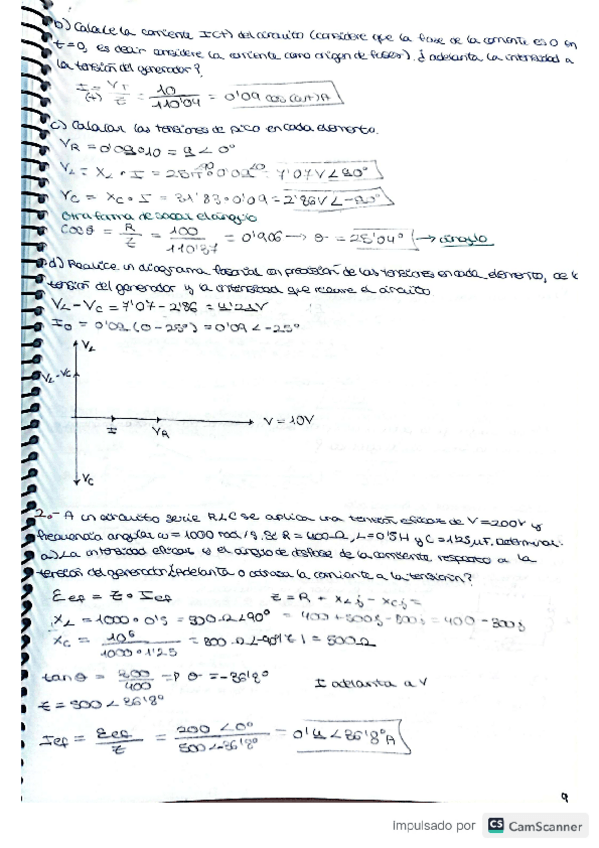 b) Calcule la corriente I(t) del circuito (considere que la fase de la corriente es 0 en
t=0, es decir considere la corriente como origen de fases). ¿adelanta la intensidad a
la tensión del generador?
I(t) = VT/Z = 10/110'04 = 0'09 cos(ωt)A
c) Calcular las tensiones de pico en cada elemento.
VR = 0'09·10 = 9∠0°
VL = XL · I = 7'07V∠90°
VC = XC · I = 31'83·0'09 = 2'86V∠-90°
Otra forma de sacar el ángulo
cosθ = R/Z = 100/110'37 = 0'906 → θ = 25'04° → ángulo
d) Realice un diagrama fasorial con precisión de las tensiones en cada elemento, de la
tensión del generador y la intensidad que recorre el circuito
VL-VC = 7'07-2'86 = 4'21V
I0 = 0'09 (0-25°) = 0'09∠-25°
VL
VL-VC
I
VR
V = 10V
VC
2.- A un circuito serie RLC se aplica una tensión eficaz de V=200V y
frecuencia angular ω=1000 rad/s. Si R=400Ω, L=0'5H y C=1'25μF. Determinar:
a) La intensidad eficaz y el ángulo de desfase de la corriente respecto a la
tensión del generador ¿Adelanta o atrasa la corriente a la tensión?
Eef = Z · Ief
Z = R + XLj - XCj =
XL = 1000·0'5 = 500Ω∠90°
= 400+500j-800j = 400-300j
XC = 10⁶/1000·1'25 = 800Ω∠-90° |Z| = 500Ω
tanθ = /400 => θ = -36'8°
I adelanta a V
Z = 500∠36'8°
Ief = Eef/Z = 200∠0°/500∠-36'8° = 0'4∠36'8°A
9
Impulsado por CS CamScanner